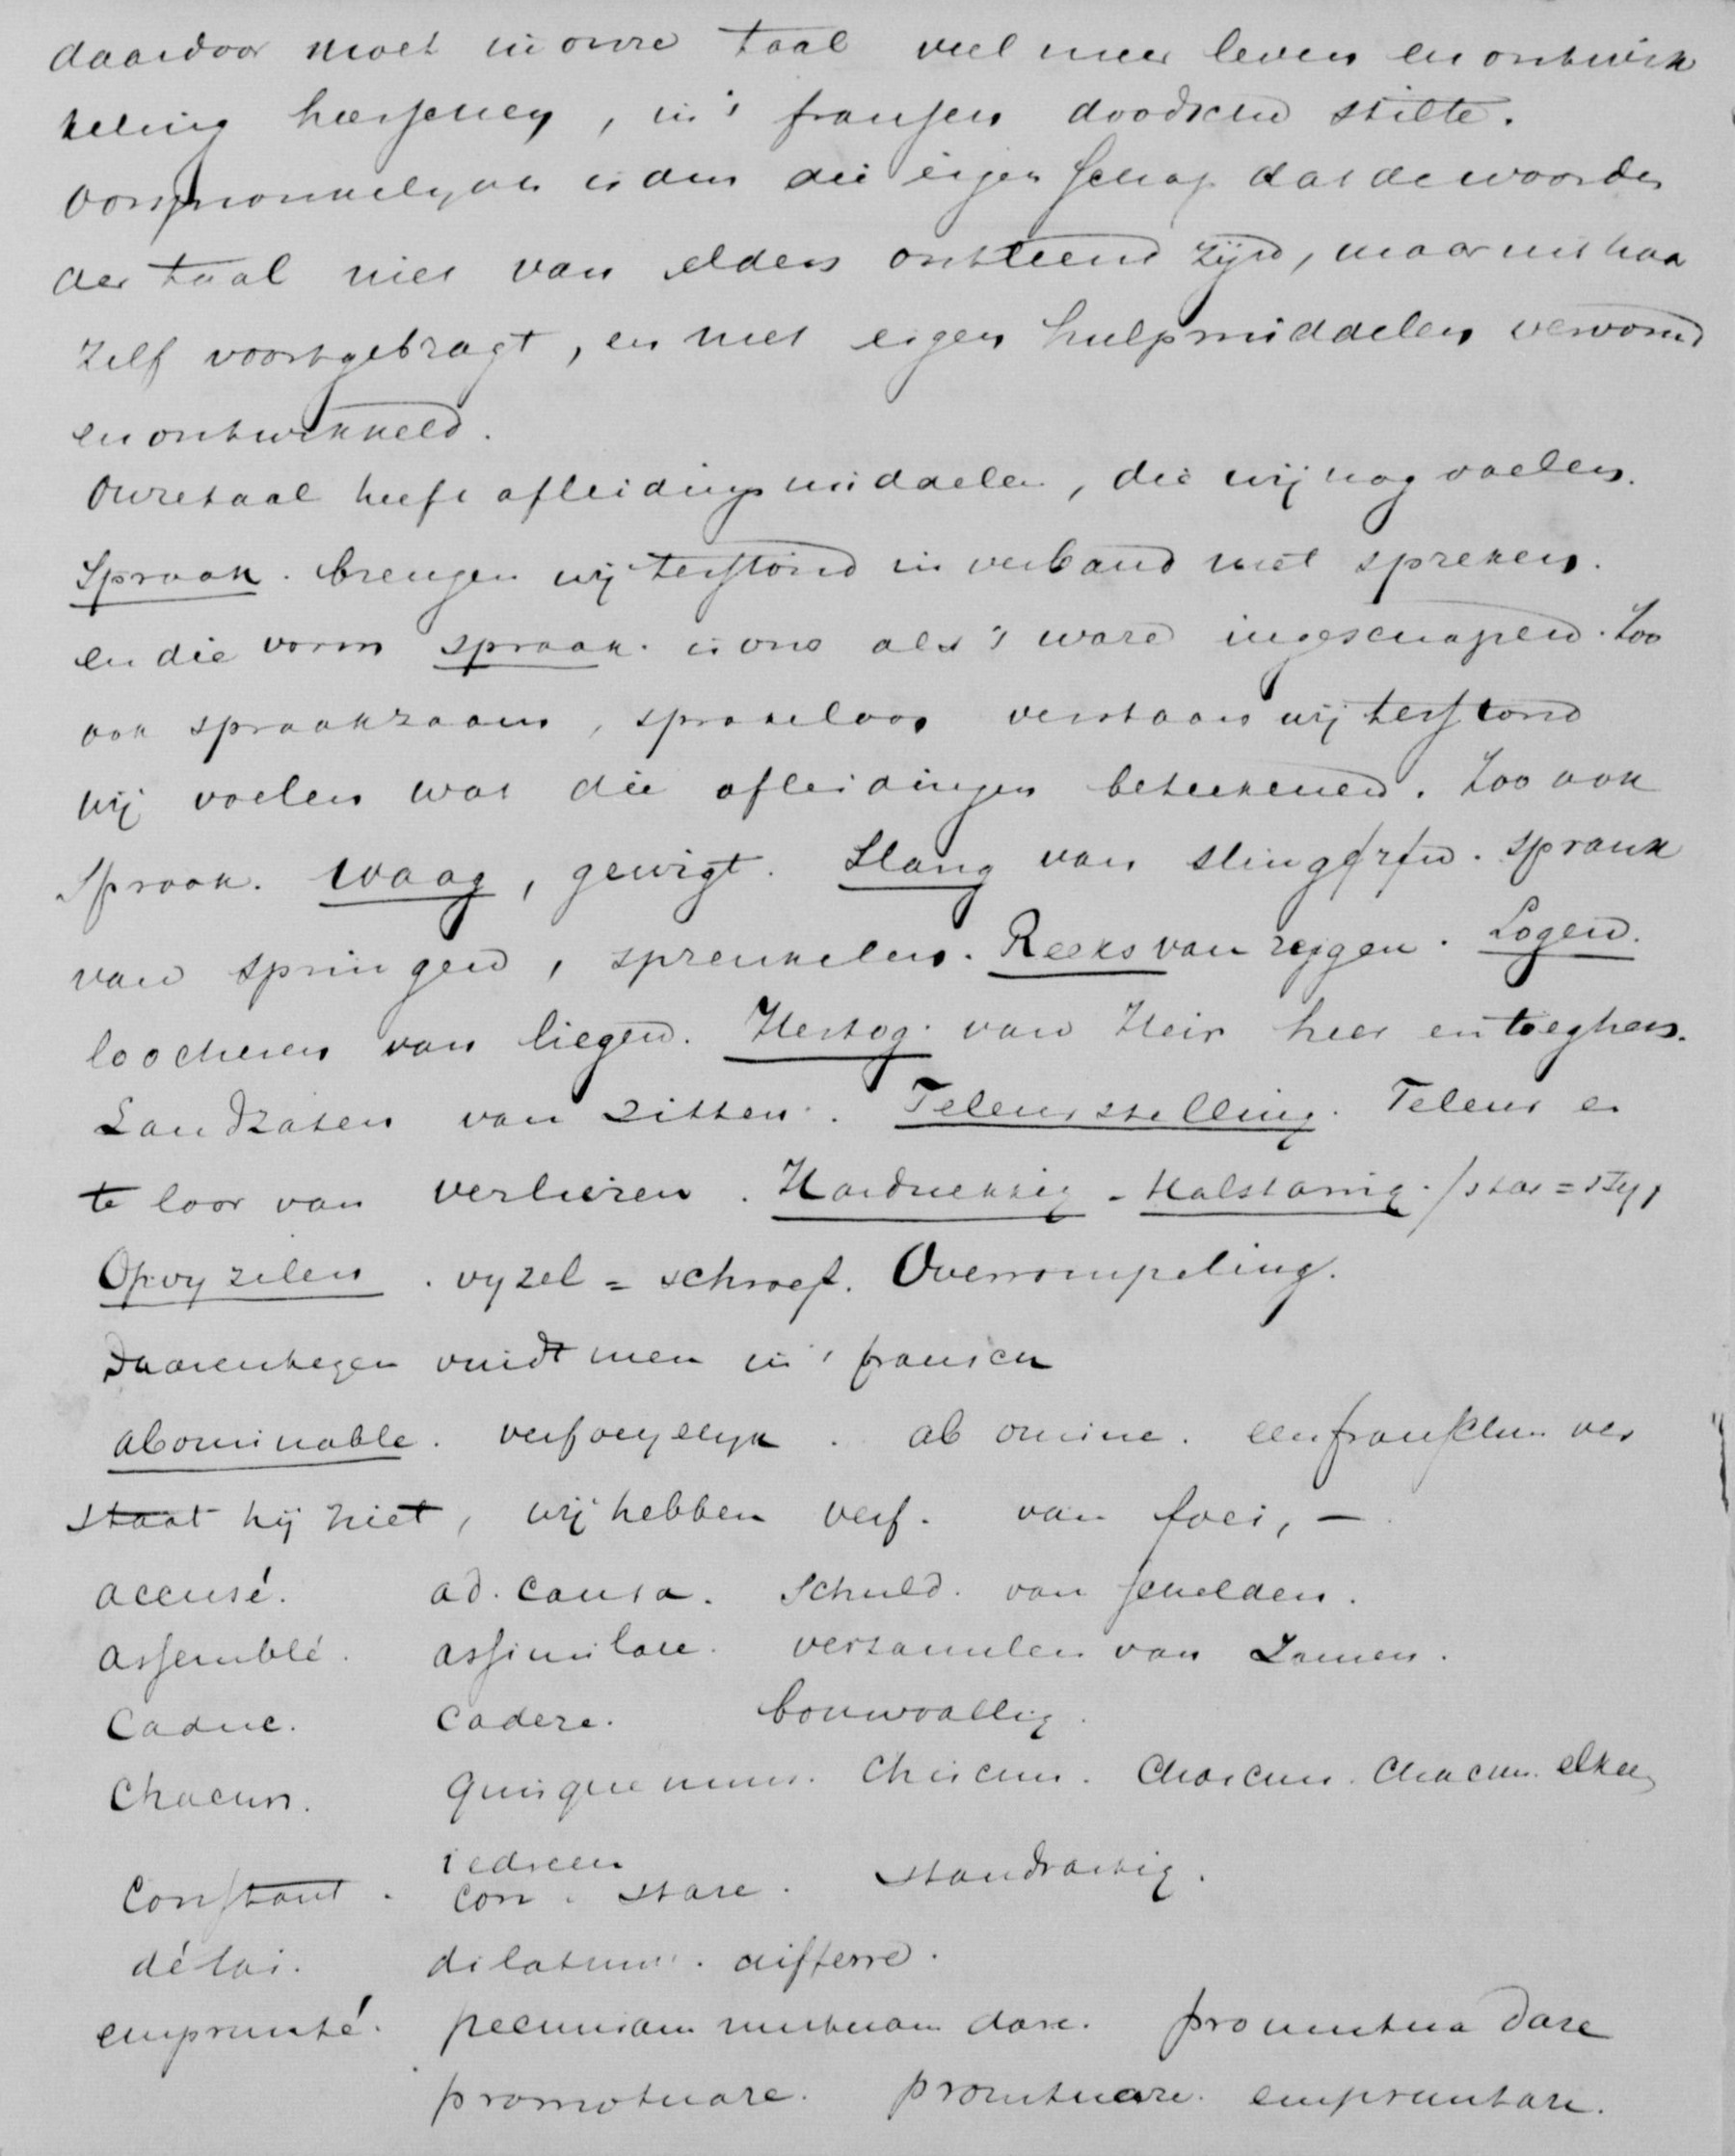 daardoor moet in onze taal veel meer leven en ontwik
keling heerschen, in 't fransch doodsche stilte.
Oorspronkelykh is dus die eigenschap dat de woorden
der taal niet van elders ontleend zijn, maar uit haar
zelf voortgebragt, en met eigen hulpmiddelen vervormd
en ontwikkeld.
Onze taal heeft afleidingsmiddelen, die wij nog voelen.
Spraak. brengen wij terstond in verband met spreken.
en die vorm spraak. is ons als 't ware ingeschapen. Zoo
ook spraakzaam, sprakeloos verstaan wij terstond
wij voelen wat die afleidingen beteekenen. Zoo ook
Spraak. Waag, gewigt. Slang van slingeren. sprank
van springen, sprenkelen. Reeks van rijgen. Logen.
loochenen van liegen. Hertog. van Heir heer en toeghen.
Landzaten van zitten. Teleurstelling. Teleur en
te loor van verliezen. Hardnekkig - Halstarrig. /star = styf
Opvyzelen. vyzel = schroef. Overrompeling.
Daarentegen vindt men in 't fransch
abominable. verfoeyelyk. ab omine. een franschm ver
staat hij niet, wij hebben verf. van foei, -
accusé. ad. causa. Schuld. van schelden.
assemblé. assimilare. verzamelen van Zamen.
Caduc. Cadere. bouwvallig.
Chacun. Quisque unus. Chiscun. Chascun. Chacun. elkeen
iedreen
Constant. Con. stare. standvastig.
délai. dilatum. differre.
emprunté. pecuniam mutuam dare. promutua dare
promotuare. promtuare. empruntare.